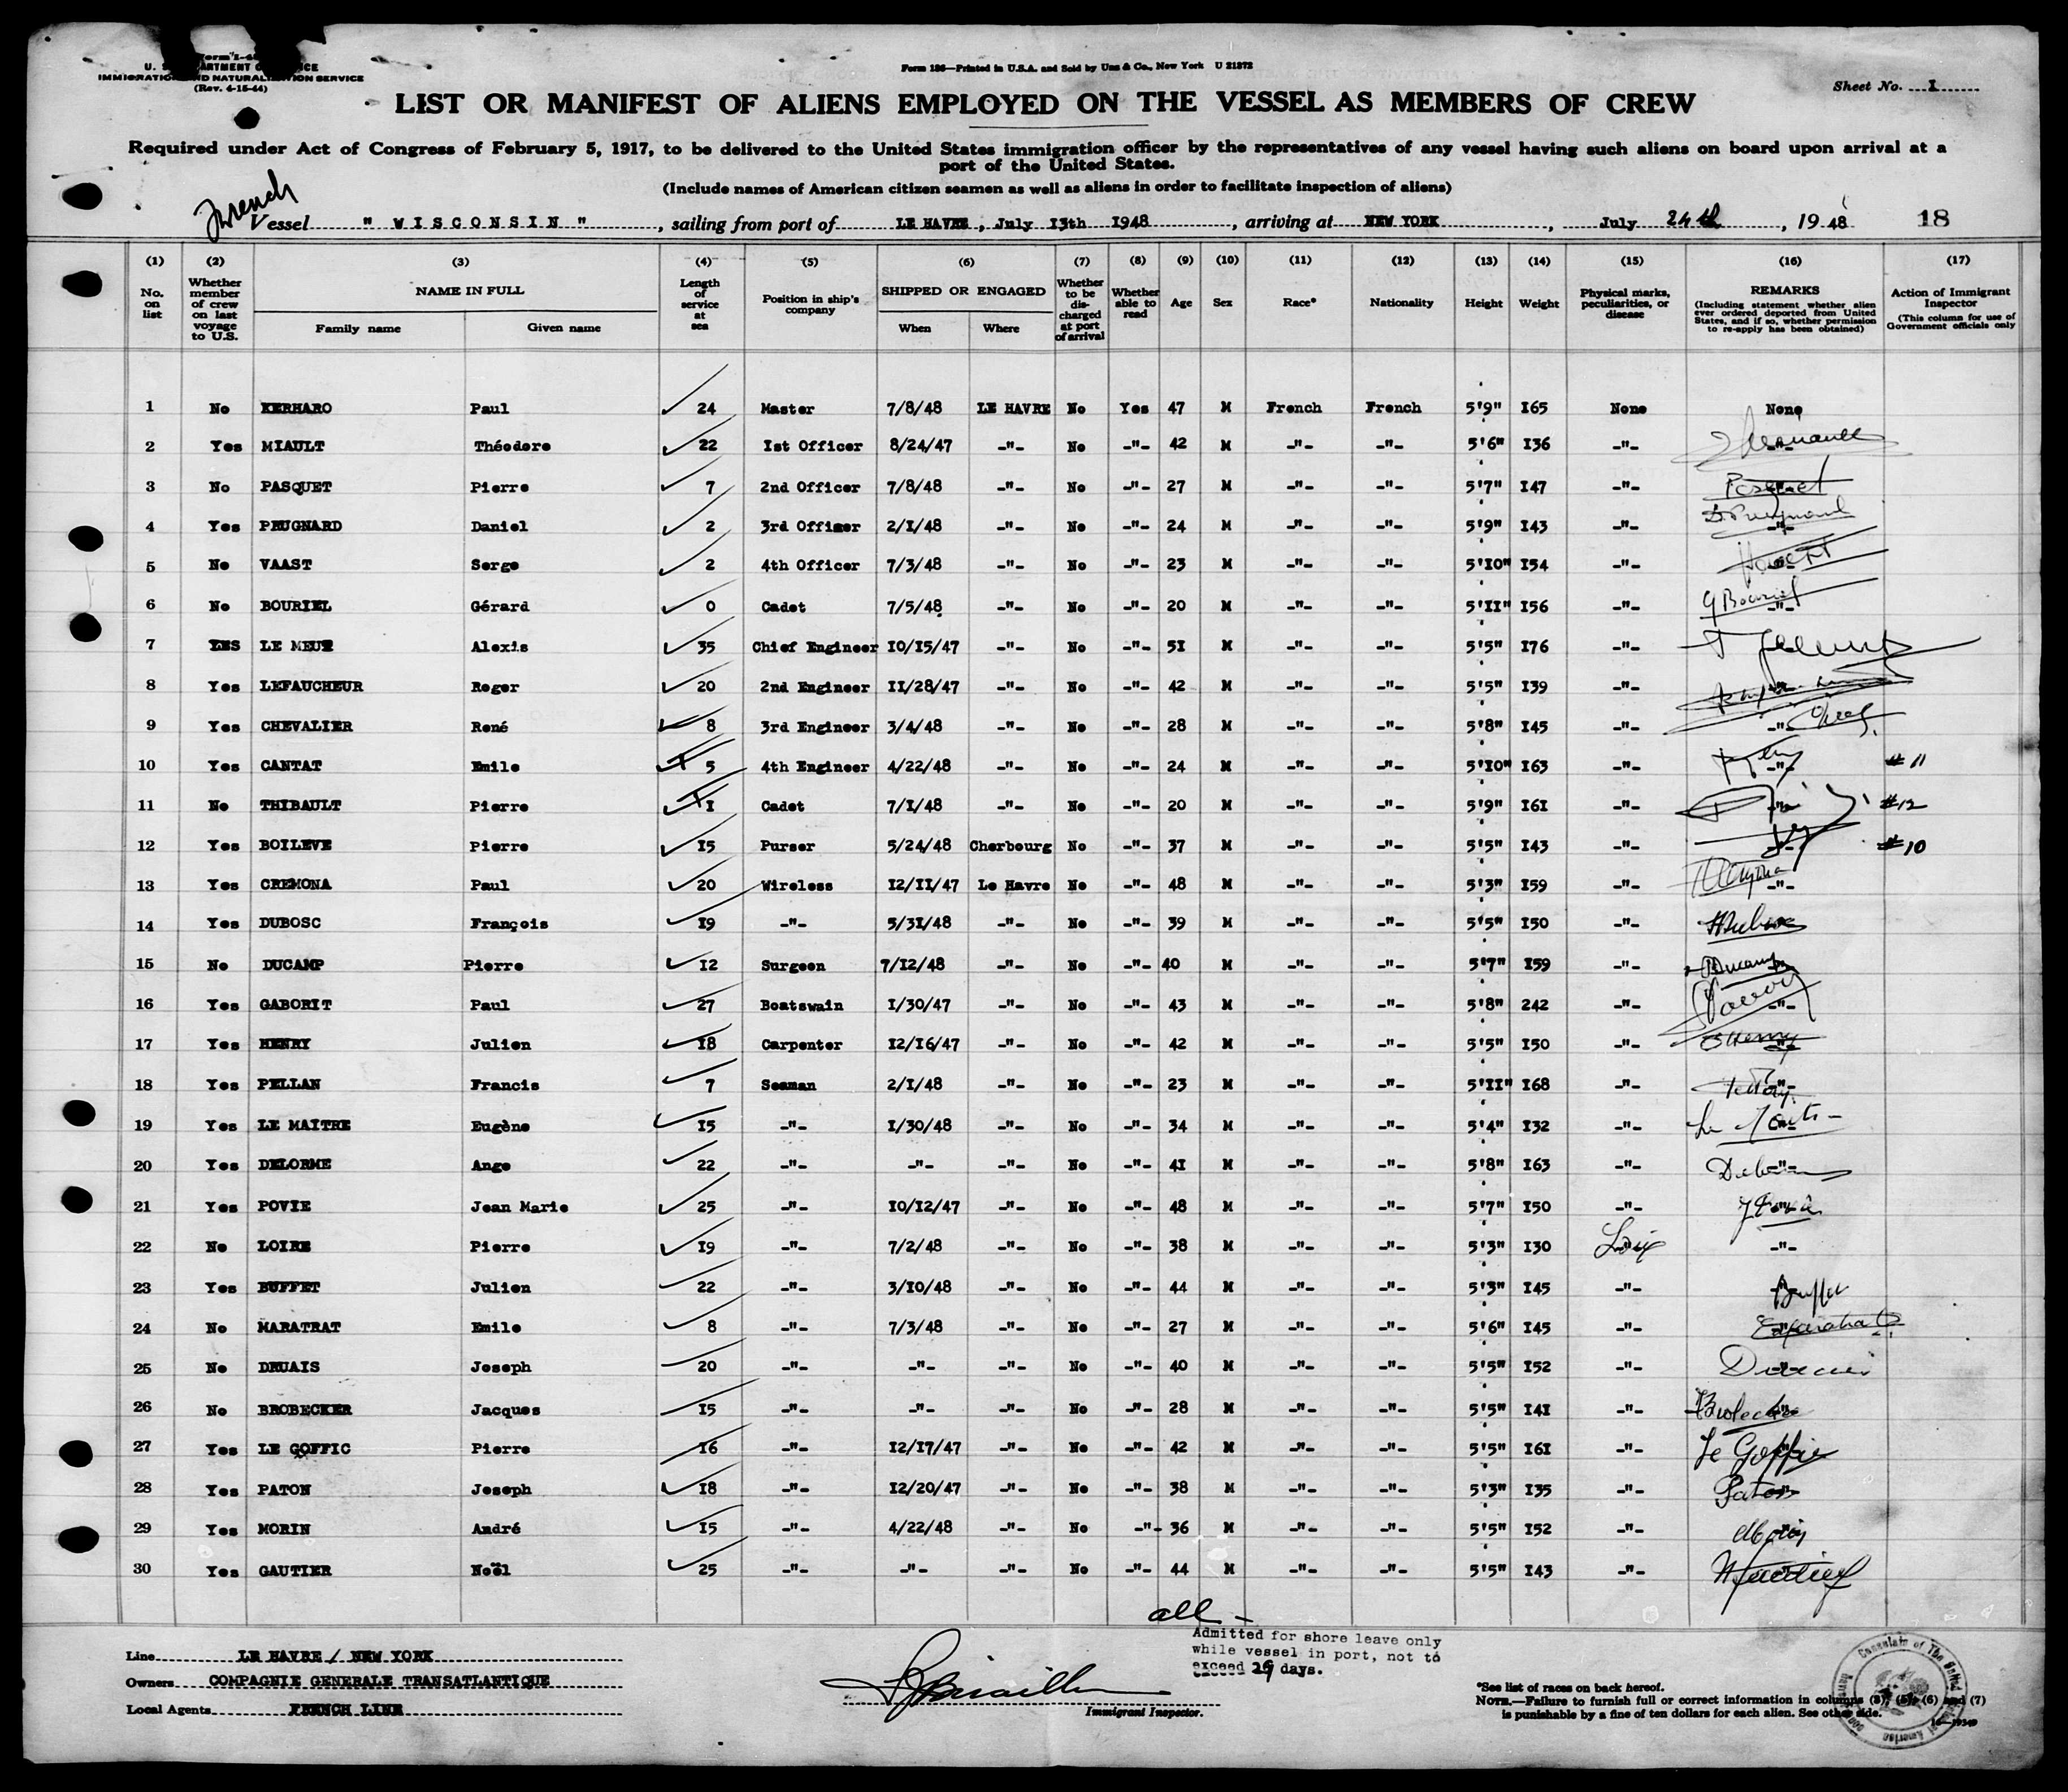 Form I-4
U. S. DEPARTMENT OF JUSTICE
IMMIGRATION AND NATURALIZATION SERVICE
(Rev. 4-15-44)
Form 186—Printed in U.S.A. and Sold by Unz & Co., New York U 21372
Sheet No. 1
LIST OR MANIFEST OF ALIENS EMPLOYED ON THE VESSEL AS MEMBERS OF CREW
Required under Act of Congress of February 5, 1917, to be delivered to the United States immigration officer by the representatives of any vessel having such aliens on board upon arrival at a
port of the United States.
(Include names of American citizen seamen as well as aliens in order to facilitate inspection of aliens)
French
Vessel " WISCONSIN ", sailing from port of LE HAVRE, July 13th 1948, arriving at NEW YORK, July 24th, 1948 18
(1) (2) (3) (4) (5) (6) (7) (8) (9) (10) (11) (12) (13) (14) (15) (16) (17)
No. on list
Whether member of crew on last voyage to U.S.
NAME IN FULL
Family name
Given name
Length of service at sea
Position in ship's company
SHIPPED OR ENGAGED
When
Where
Whether to be discharged at port of arrival
Whether able to read
Age
Sex
Race*
Nationality
Height
Weight
Physical marks, peculiarities, or disease
REMARKS
(Including statement whether alien ever ordered deported from United States, and if so, whether permission to re-apply has been obtained)
Action of Immigrant Inspector
(This column for use of Government officials only
1 No KERHARO Paul 24 Master 7/8/48 LE HAVRE No Yes 47 M French French 5'9" I65 None None
2 Yes MIAULT Théodore 22 Ist Officer 8/24/47 -"- No -"- 42 M -"- -"- 5'6" I36 -"- -"-
3 No PASQUET Pierre 7 2nd Officer 7/8/48 -"- No -"- 27 M -"- -"- 5'7" I47 -"- Pasquet
4 Yes PRUGNARD Daniel 2 3rd Officer 2/I/48 -"- No -"- 24 M -"- -"- 5'9" I43 -"- -"-
5 No VAAST Serge 2 4th Officer 7/3/48 -"- No -"- 23 M -"- -"- 5'I0" I54 -"- -"-
6 No BOURIEL Gérard 0 Cadet 7/5/48 -"- No -"- 20 M -"- -"- 5'II" I56 -"- G Bouriel -"-
7 YES LE MEUR Alexis 35 Chief Engineer I0/I5/47 -"- No -"- 5I M -"- -"- 5'5" I76 -"-
8 Yes LEFAUCHEUR Roger 20 2nd Engineer II/28/47 -"- No -"- 42 M -"- -"- 5'5" I39 -"- -"-
9 Yes CHEVALIER René 8 3rd Engineer 3/4/48 -"- No -"- 28 M -"- -"- 5'8" I45 -"- -"-
10 Yes CANTAT Emile 5 4th Engineer 4/22/48 -"- No -"- 24 M -"- -"- 5'I0" I63 -"- -"- #11
11 No THIBAULT Pierre I Cadet 7/I/48 -"- No -"- 20 M -"- -"- 5'9" I6I -"- -"- #12
12 Yes BOILEVE Pierre I5 Purser 5/24/48 Cherbourg No -"- 37 M -"- -"- 5'5" I43 -"- -"- #10
13 Yes CREMONA Paul 20 Wireless I2/II/47 Le Havre No -"- 48 M -"- -"- 5'3" I59 -"- -"-
14 Yes DUBOSC François I9 -"- 5/3I/48 -"- No -"- 39 M -"- -"- 5'5" I50 -"-
15 No DUCAMP Pierre I2 Surgeon 7/I2/48 -"- No -"- 40 M -"- -"- 5'7" I59 -"- Ducamp
16 Yes GABORIT Paul 27 Boatswain I/30/47 -"- No -"- 43 M -"- -"- 5'8" 242 -"- -"-
17 Yes HENRY Julien I8 Carpenter I2/I6/47 -"- No -"- 42 M -"- -"- 5'5" I50 -"- Henry
18 Yes PELLAN Francis 7 Seaman 2/I/48 -"- No -"- 23 M -"- -"- 5'II" I68 -"- -"-
19 Yes LE MAITRE Eugène I5 -"- I/30/48 -"- No -"- 34 M -"- -"- 5'4" I32 -"-
20 Yes DELORME Ange 22 -"- -"- -"- No -"- 4I M -"- -"- 5'8" I63 -"- -"-
21 Yes POVIE Jean Marie 25 -"- I0/I2/47 -"- No -"- 48 M -"- -"- 5'7" I50 -"-
22 No LOIRE Pierre I9 -"- 7/2/48 -"- No -"- 38 M -"- -"- 5'3" I30 -"-
23 Yes BUFFET Julien 22 -"- 3/I0/48 -"- No -"- 44 M -"- -"- 5'3" I45 -"- Buffet
24 No MARATRAT Emile 8 -"- 7/3/48 -"- No -"- 27 M -"- -"- 5'6" I45 -"-
25 No DRUAIS Joseph 20 -"- -"- -"- No -"- 40 M -"- -"- 5'5" I52 -"-
26 No BROBECKER Jacques I5 -"- -"- -"- No -"- 28 M -"- -"- 5'5" I4I -"- Brobecker
27 Yes LE GOFFIC Pierre I6 -"- I2/I7/47 -"- No -"- 42 M -"- -"- 5'5" I6I -"- Le Goffic
28 Yes PATON Joseph I8 -"- I2/20/47 -"- No -"- 38 M -"- -"- 5'3" I35 -"- Paton
29 Yes MORIN André I5 -"- 4/22/48 -"- No -"- 36 M -"- -"- 5'5" I52 -"- Morin
30 Yes GAUTIER Noël 25 -"- -"- -"- No -"- 44 M -"- -"- 5'5" I43 -"- N Gautier
all -
Admitted for shore leave only
while vessel in port, not to
exceed 29 days.
Line LE HAVRE / NEW YORK
Owners COMPAGNIE GENERALE TRANSATLANTIQUE
Local Agents FRENCH LINE
Immigrant Inspector.
*See list of races on back hereof.
NOTE.—Failure to furnish full or correct information in columns (3), (5), (6) and (7)
is punishable by a fine of ten dollars for each alien. See other side.
Consulate of The United States of America